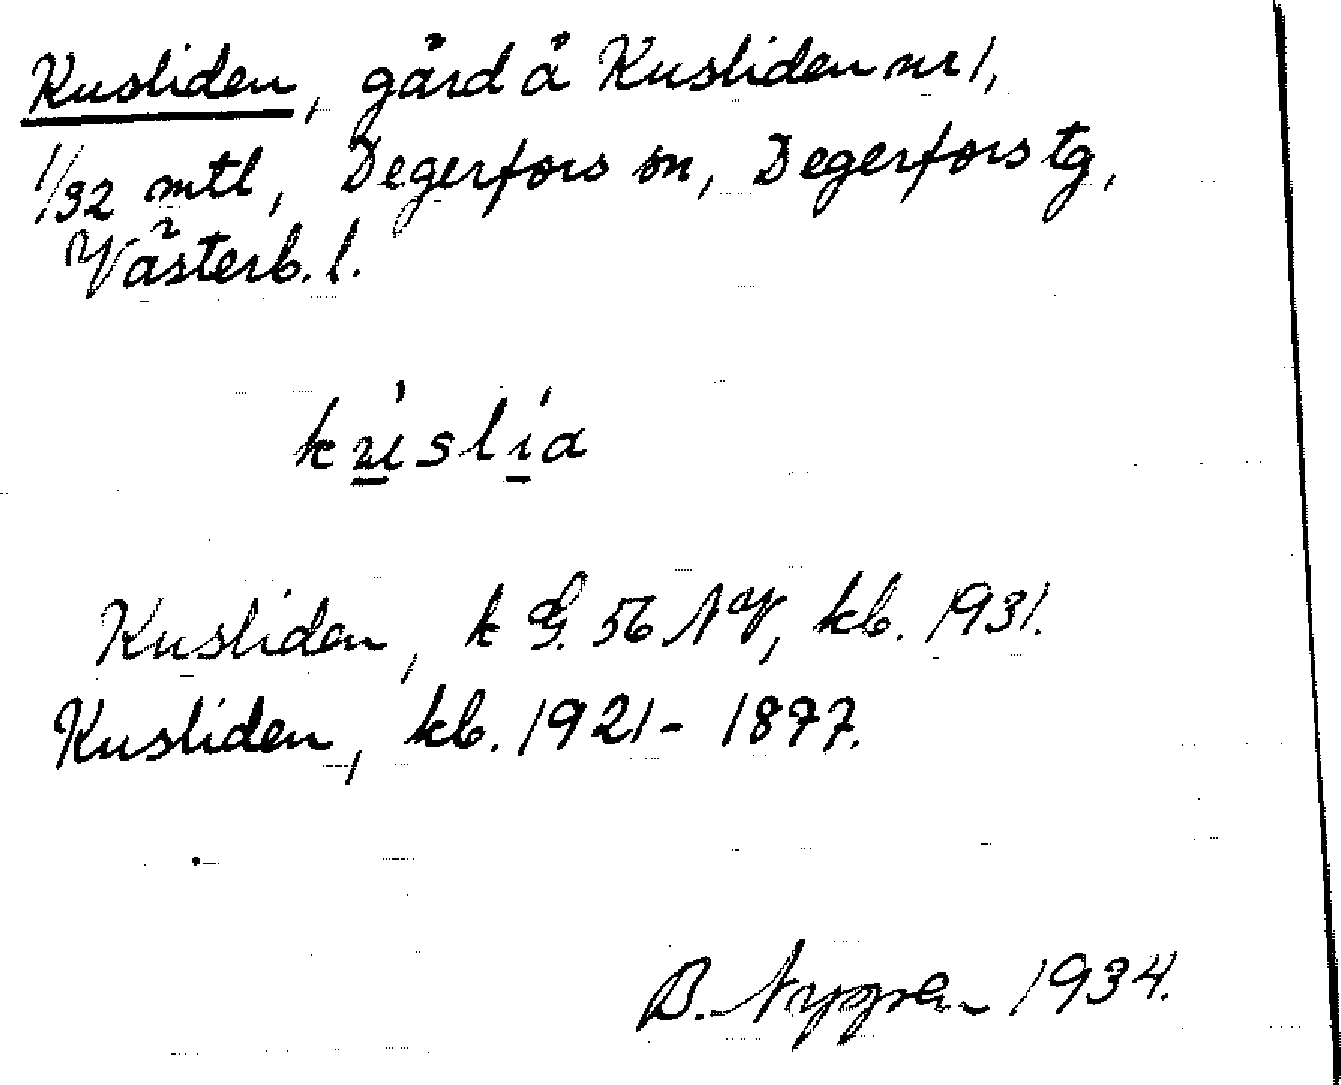 Kusliden, gård å Kusliden nr 1,
1/32 mtl, Degerfors sn, Degerfors tg,
Västerb. l.
kúslía
Kusliden, k G. 56 NV, kb. 1931.
Kusliden, kb. 1921-1877.
B. Nygren 1934.